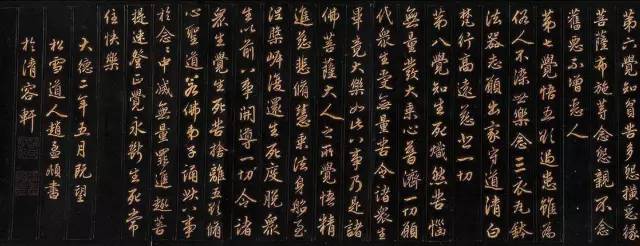 第六覺知貧苦多怨橫結惡緣
菩薩布施等念怨親不念
舊惡不憎惡人
第七覺悟五欲過患雖為
俗人不染世樂念三衣瓦鉢
法器志願出家守道清白
梵行高遠慈悲一切
第八覺知生死熾然苦惱
無量發大乘心普濟一切願
代衆生受無量苦令諸衆生
畢竟大樂如此八事乃是諸
佛菩薩大人之所覺悟精
進慈悲脩慧乘法身船至
涅槃岸復還生死度脫衆
生以前八事開導一切令諸
衆生覺生死苦捨離五欲脩
心聖道若佛弟子誦此八事
於念念中滅無量罪進趣菩
提速登正覺永斷生死常
住快樂
大德二年五月既望
松雪道人趙孟頫書
於清容軒